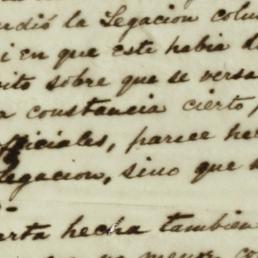 ndió la Legacion colu
i en que este habia d
ito sobre que se versa
a constancia cierto
ficiales, parece he
legacion, sino que
arta hecha tambien